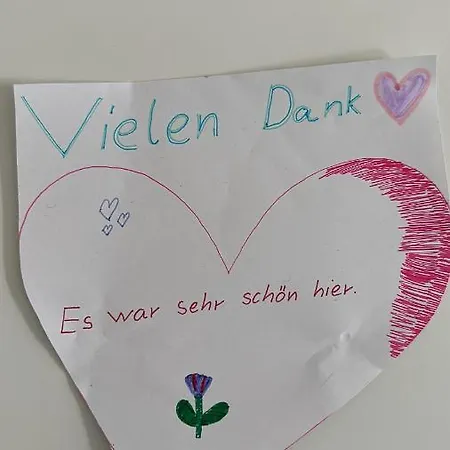 Vielen Dank
Es war sehr schön hier.